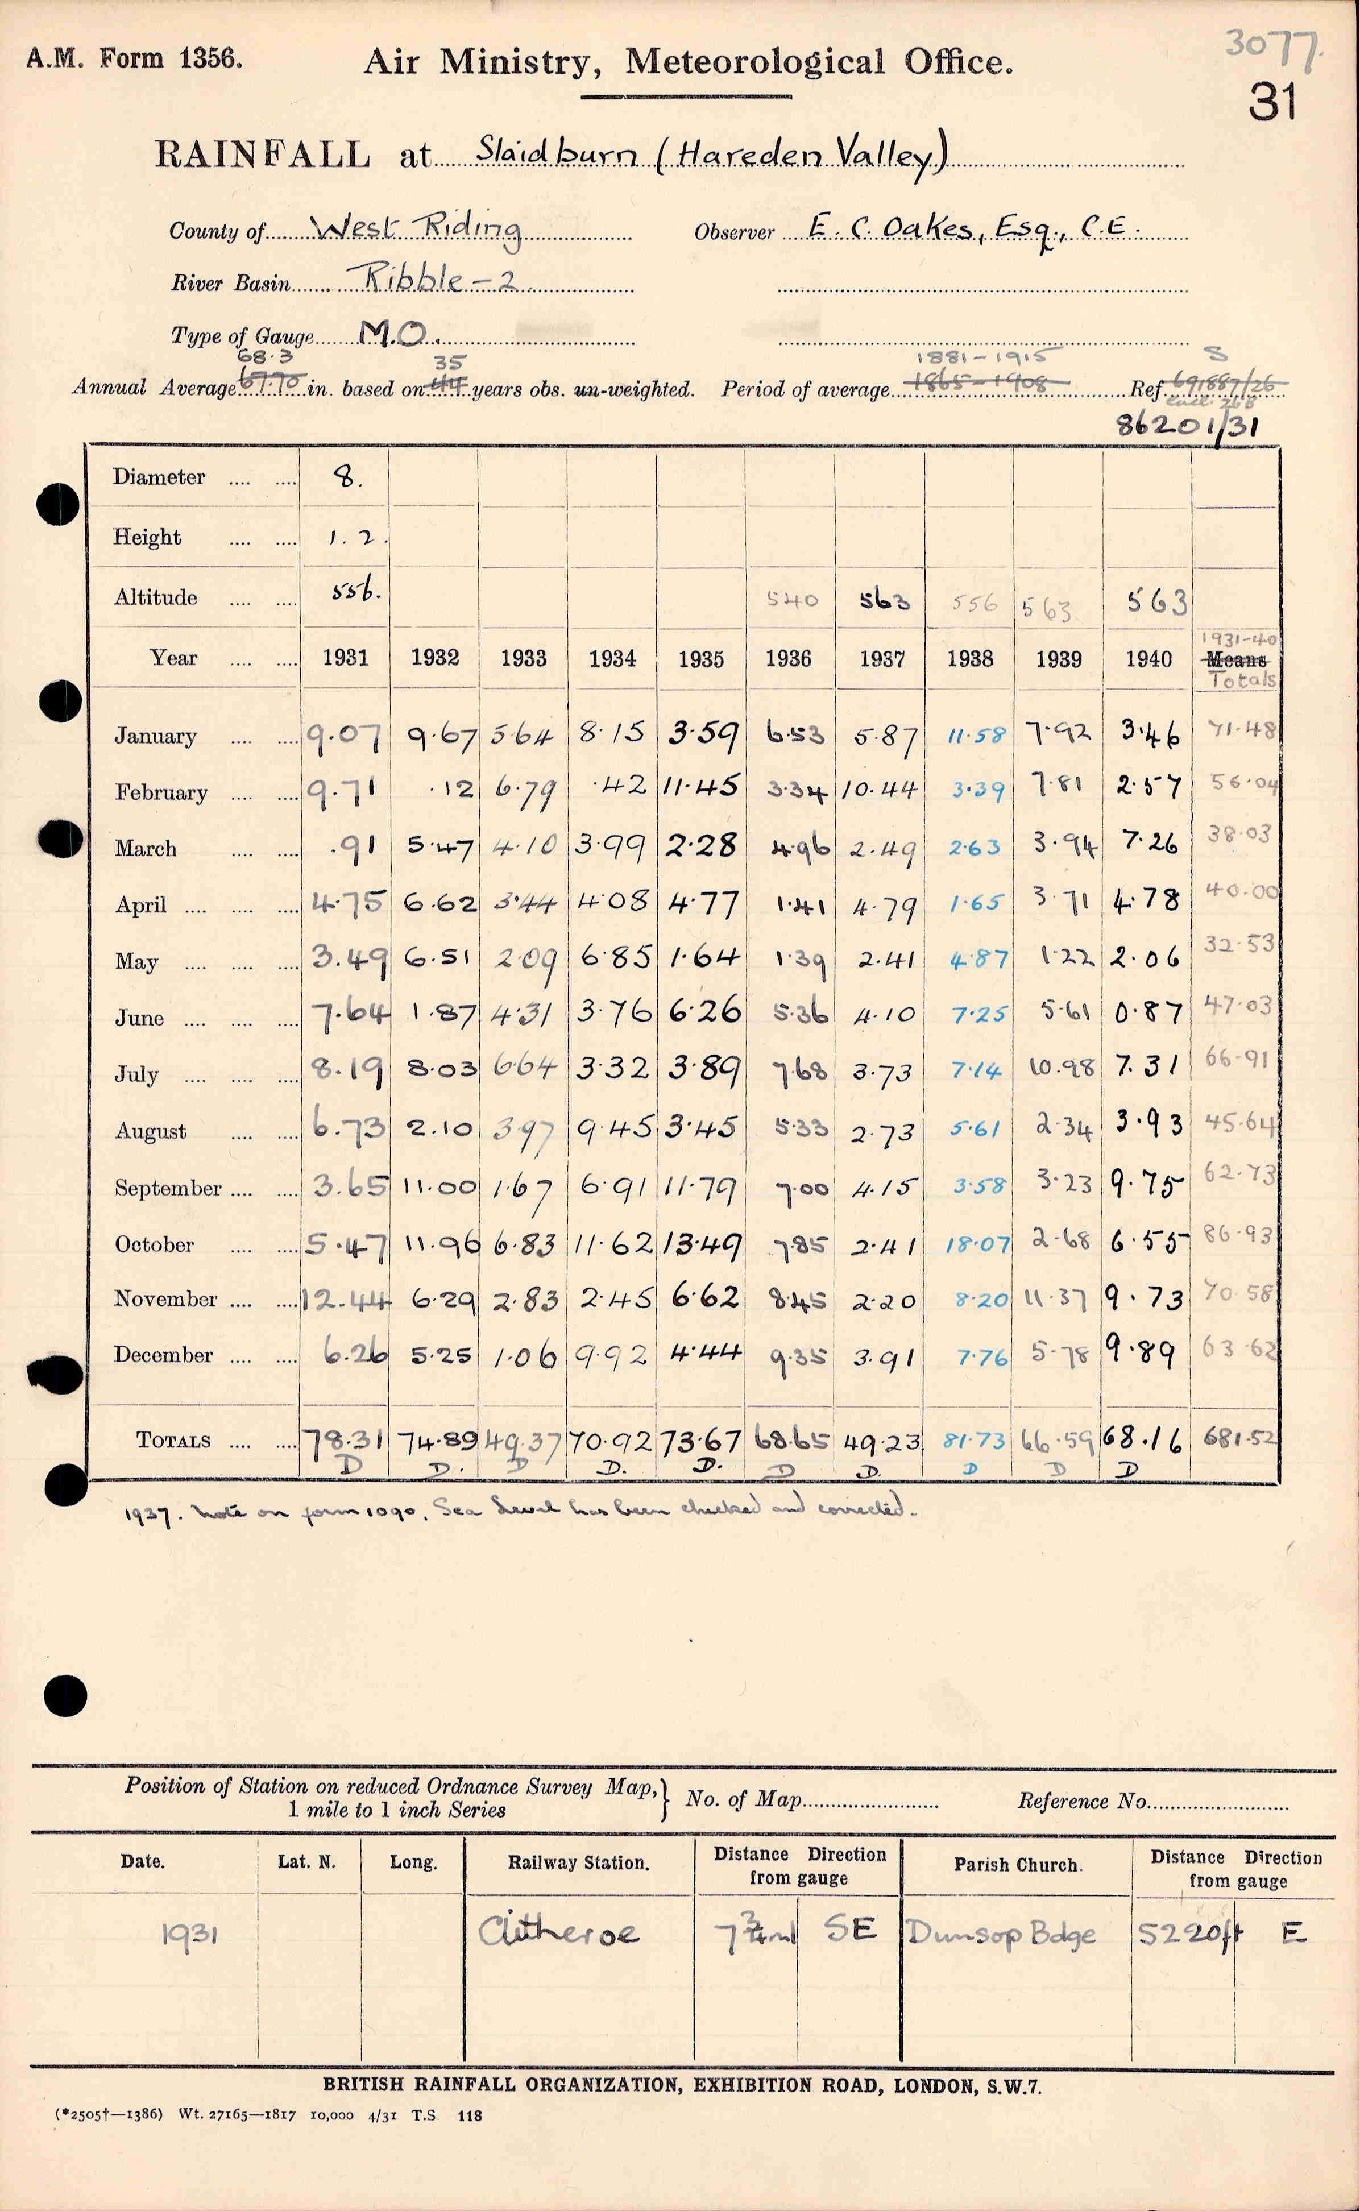 3077.
A.M. Form 1356. Air Ministry, Meteorological Office.
31
RAINFALL at Slaidburn (Hareden Valley)
County of West Riding Observer E. C. Oakes, Esq., C.E.
River Basin Ribble - 2
Type of Gauge M.O.
68.3 35 1881-1915 S
Annual Average 67.70 in. based on 44 years obs. un-weighted. Period of average 1865-1908 Ref. 691887/26
86201/31
Diameter 8.
Height 1.2.
Altitude 556. 540 563 556 563 563
1931-40
Year 1931 1932 1933 1934 1935 1936 1937 1938 1939 1940 Means
Totals
January 9.07 9.67 5.64 8.15 3.59 6.53 5.87 11.58 7.92 3.46 71.48
February 9.71 .12 6.79 .42 11.45 3.34 10.44 3.39 7.81 2.57 56.04
March .91 5.47 4.10 3.99 2.28 4.96 2.49 2.63 3.94 7.26 38.03
April 4.75 6.62 3.44 4.08 4.77 1.41 4.79 1.65 3.71 4.78 40.00
May 3.49 6.51 2.09 6.85 1.64 1.39 2.41 4.87 1.22 2.06 32.53
June 7.64 1.87 4.31 3.76 6.26 5.36 4.10 7.25 5.61 0.87 47.03
July 8.19 8.03 6.64 3.32 3.89 7.68 3.73 7.14 10.98 7.31 66.91
August 6.73 2.10 3.97 9.45 3.45 5.33 2.73 5.61 2.34 3.93 45.64
September 3.65 11.00 1.67 6.91 11.79 7.00 4.15 3.58 3.23 9.75 62.73
October 5.47 11.96 6.83 11.62 13.49 7.85 2.41 18.07 2.68 6.55 86.93
November 12.44 6.29 2.83 2.45 6.62 8.45 2.20 8.20 11.37 9.73 70.58
December 6.26 5.25 1.06 9.92 4.44 9.35 3.91 7.76 5.78 9.89 63.62
TOTALS 78.31 74.89 49.37 70.92 73.67 68.65 49.23 81.73 66.59 68.16 681.52
D D. D D. D. D D. D D D
1937. Note on form 1090. Sea Level has been checked and corrected.
Position of Station on reduced Ordnance Survey Map, 1 mile to 1 inch Series } No. of Map Reference No.
Date. Lat. N. Long. Railway Station. Distance Direction from gauge Parish Church. Distance Direction from gauge
1931 Clitheroe 7¾ml SE Dunsop Bdge 5220ft E
BRITISH RAINFALL ORGANIZATION, EXHIBITION ROAD, LONDON, S.W.7.
(*2505†—1386) Wt. 27165—1817 10,000 4/31 T.S 118